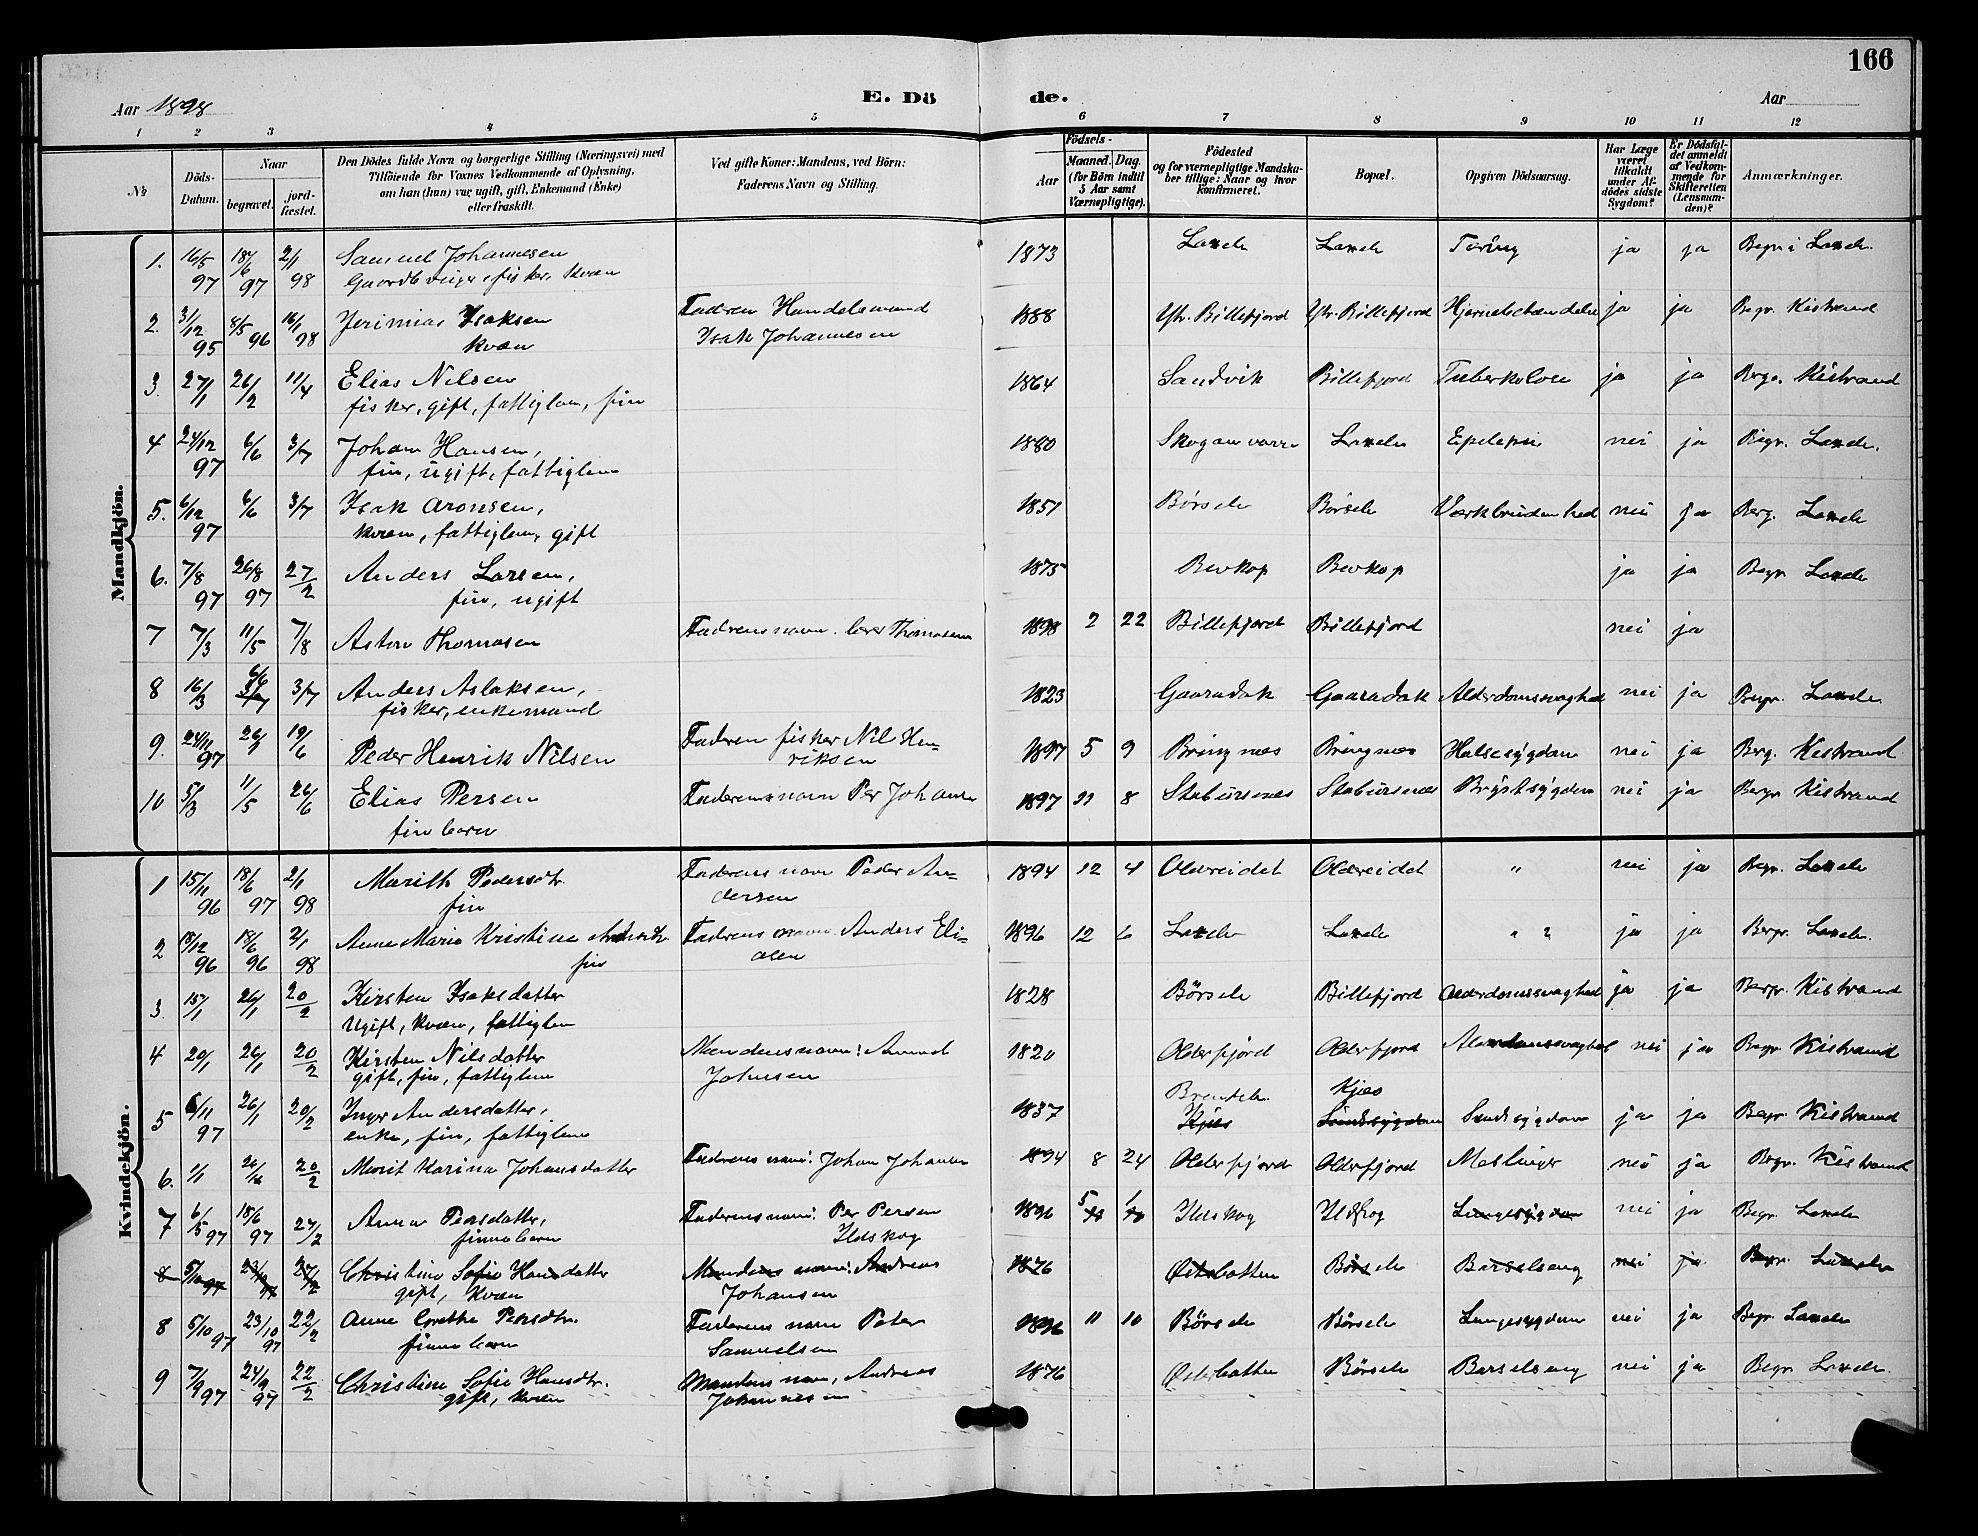 166
Aar 1898 E. Dö de. Aar
1 2 3 4 5 6 7 8 9 10 11 12
No
Döds-Datum.
Naar
begravet.
jord-fæstet.
Den Dödes fulde Navn og borgerlige Stilling (Næringsvei) med
Tilföiende for Voxnes Vedkommende af Oplysning,
om han (hun) var ugift, gift, Enkemand (Enke)
eller fraskilt.
Ved gifte Koner: Mandens, ved Börn:
Faderens Navn og Stilling.
Aar
Födsels-
Maaned. Dag.
(for Börn indtil
5 Aar samt
Værnepligtige).
Födested
og for værnepligtige Mandska-
ber tillige: Naar og hvor
konfirmeret.
Bopæl.
Opgiven Dödsaarsag.
Har Læge
været
tilkaldt
under Af-
dödes sidste
Sygdom?
Er Dödsfal-
det anmeldt
af Vedkom-
mende for
Skifteretten
(Lensman-
den)?
Anmærkninger.
Mandkjön.
1. 16/5 97 18/6 97 2/1 98 Samuel Johannesen 1873 Laxelv Laxelv Tæring ja ja Begr. i Laxelv
Gaardbruger, fisker, kvæn
2. 31/12 95 8/5 96 16/1 98 Jerimias Isaksen Faderen Handelsmand 1888 Ytr. Billefjord Ytr. Billefjord Hjernebetændelse ja ja Begr. Kistrand
kvæn Isak Johannesen
3. 27/1 26/2 11/4 Elias Nilsen 1864 Sandvik Billefjord Tuberkolose ja ja Begr. Kistrand
fisker, gift, fattiglem, fin
4 24/12 97 6/6 3/7 Johan Hansen, 1880 Skoganvarre Laxelv Epilepsi nei ja Begr. Laxelv.
fin, ugift, fattiglem
5. 6/12 97 6/6 3/7 Isak Aronsen, 1851 Börselv Börselv Værkbrudenhed nei ja Begr. Laxelv
kvæn, fattiglem, gift
6. 7/8 97 26/8 97 27/2 Anders Larsen, 1875 Bevkop Bevkop ja ja Begr. Laxelv
fin, ugift
7 7/3 11/5 7/8 Aston Thomasen Faderens navn. Lars Thomasen 1898 2 22 Billefjord Billefjord nei ja
8 16/3 6/6 3/7 Anders Aslaksen, 1823 Gaaradak Gaaradak Alderdomssvaghed nei ja Begr. Laxelv
fisker, enkemand
9. 24/11 97 26/1 19/6 Peder Henrik Nilsen Faderen fisker Nil Hen- 1897 5 9 Bringnæs Bringnæs Halsesygdom nei ja Begr. Kistrand
riksen
10 5/3 11/5 26/6 Elias Persen Faderens navn Per Johansen 1897 11 8 Stabursnæs Stabursnæs Brystsygdom nei ja Begr. Kistrand
fin barn
Kvindekjön.
1 15/11 96 18/6 97 2/1 98 Marith Pedersdtr. Faderens navn Peder An- 1894 12 4 Oldereidet Oldereidet " nei ja Begr. Laxelv
fin dersen
2 18/12 96 18/6 96 2/1 98 Anne Marie Kristine Andersdtr. Faderens navn Anders Eli- 1896 12 6 Laxelv Laxelv " " ja ja Begr. Laxelv.
fin asen
3. 15/1 26/1 20/2 Kirsten Isaksdatter 1828 Börselv Billefjord Alderdomssvaghed ja ja Begr. Kistrand
Ugift, kvæn, fattiglem
4 20/1 26/1 20/2 Kirsten Nilsdatter Mandens navn: Amund 1820 Olderfjord Olderfjord Alderdomssvaghed nei ja Begr. Kistrand
gift, fin, fattiglem Johnsen
Brendelv. Kjæs
5 6/11 97 26/1 20/2 Inger Andersdatter, 1837 Kjæs Sindssygdom Sindssygdom ja ja Begr. Kistrand
enke, fin, fattiglem
6. 1/1 20/2 Marit Karina Johansdatter Faderens navn: Johan Johansen 1894 8 24 Olderfjord Olderfjord Meslinger nei ja Begr. Kistrand
7 6/5 97 18/6 97 27/2 Anna Persdatter, Faderens navn: Per Persen 1896 5 6 Ildskog Ildskog Lungesygdom nei ja Begr. Laxelv
finnebarn Ildskog
8 5/10 97 23/10 97 27/2 Christine Sofie Hansdatter Mandens navn: Andreas 1876 Østerbotten Börselv Barselseng nei ja Begr. Laxelv
gift, kvæn Johansen
8 5/10 97 23/10 97 22/2 Anne Grethe Persdtr. Faderens navn Peter 1896 11 10 Börselv Börselv Lungesygdom nei ja Begr. Laxelv
finnebarn Samuelsen
9 7/9 97 24/9 97 22/2 Christine Sofie Hansdtr. Mandens navn, Andreas 1876 Østerbotten Börselv Barselseng nei ja Begr. Laxelv
gift, kvæn Johannesen